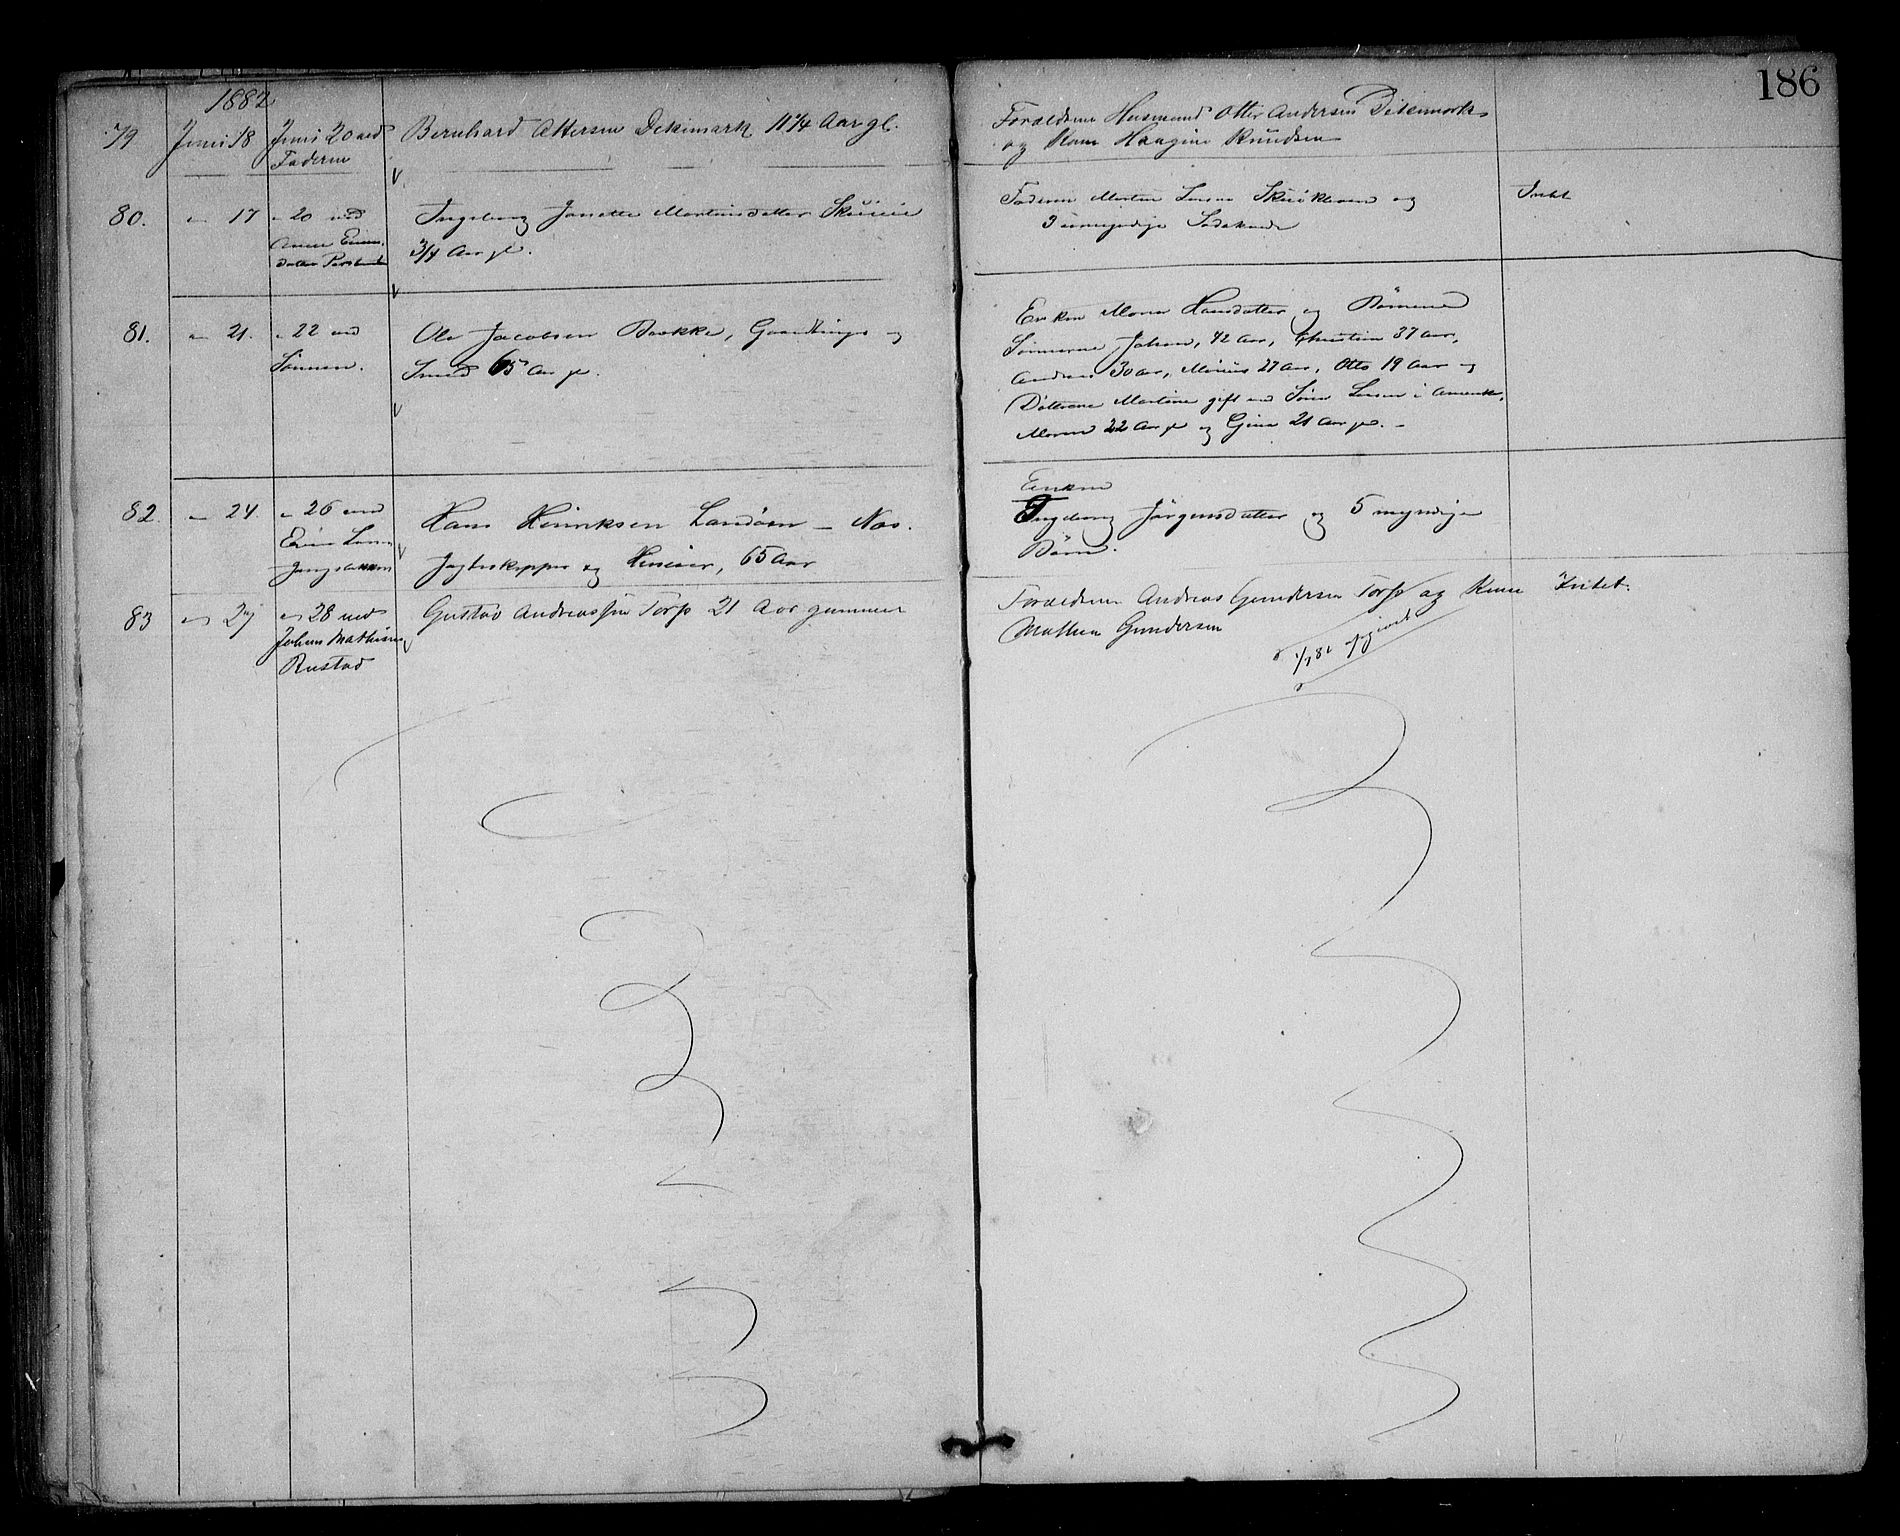 186
1882
79 Juni 18 Juni 20 ved Faderen
Bernhard Ottersen Dekimark 11 3/4 Aar gl.
Forældrene Husmand Otter Andersen Dikemark
og Kone Haagine Knudsen
80. " 17 " 20 ved
Ingeborg Janette Martinsdatter
3/4 Aar gl.
Faderen Martin Larsen og
3 umyndige Sødskende
Intet
81. " 21. " 22 ved
Sønnen.
Ole Jacobsen Bakke, Gaardbruger og
Smed 65 Aar gl.
Enken Maren Hansdatter og Børnene
Sønnerne Johan, 42 Aar, Christian 37 aar,
Andreas 30 aar, 27 aar, Otto 19 Aar og
Døttrene Martine gift med Larsen i Amerika,
Maren 22 Aar gl og Gina 21 Aar gl. -
82. " 24. " 26 ved
Hans Henriksen Landøen - Næs.
Jagteskipper og Huseier, 65 Aar
Enken
Ingeborg Jørgensdatter og 5 myndige
Børn.
83 " 27 " 28 ved
Johan Mathisen
Rustad
Gustav Andreassen Torp 21 Aar gammel
Forældrene Andreas Gundersen Torp og Kone
Mathea Gundersen
Intet.